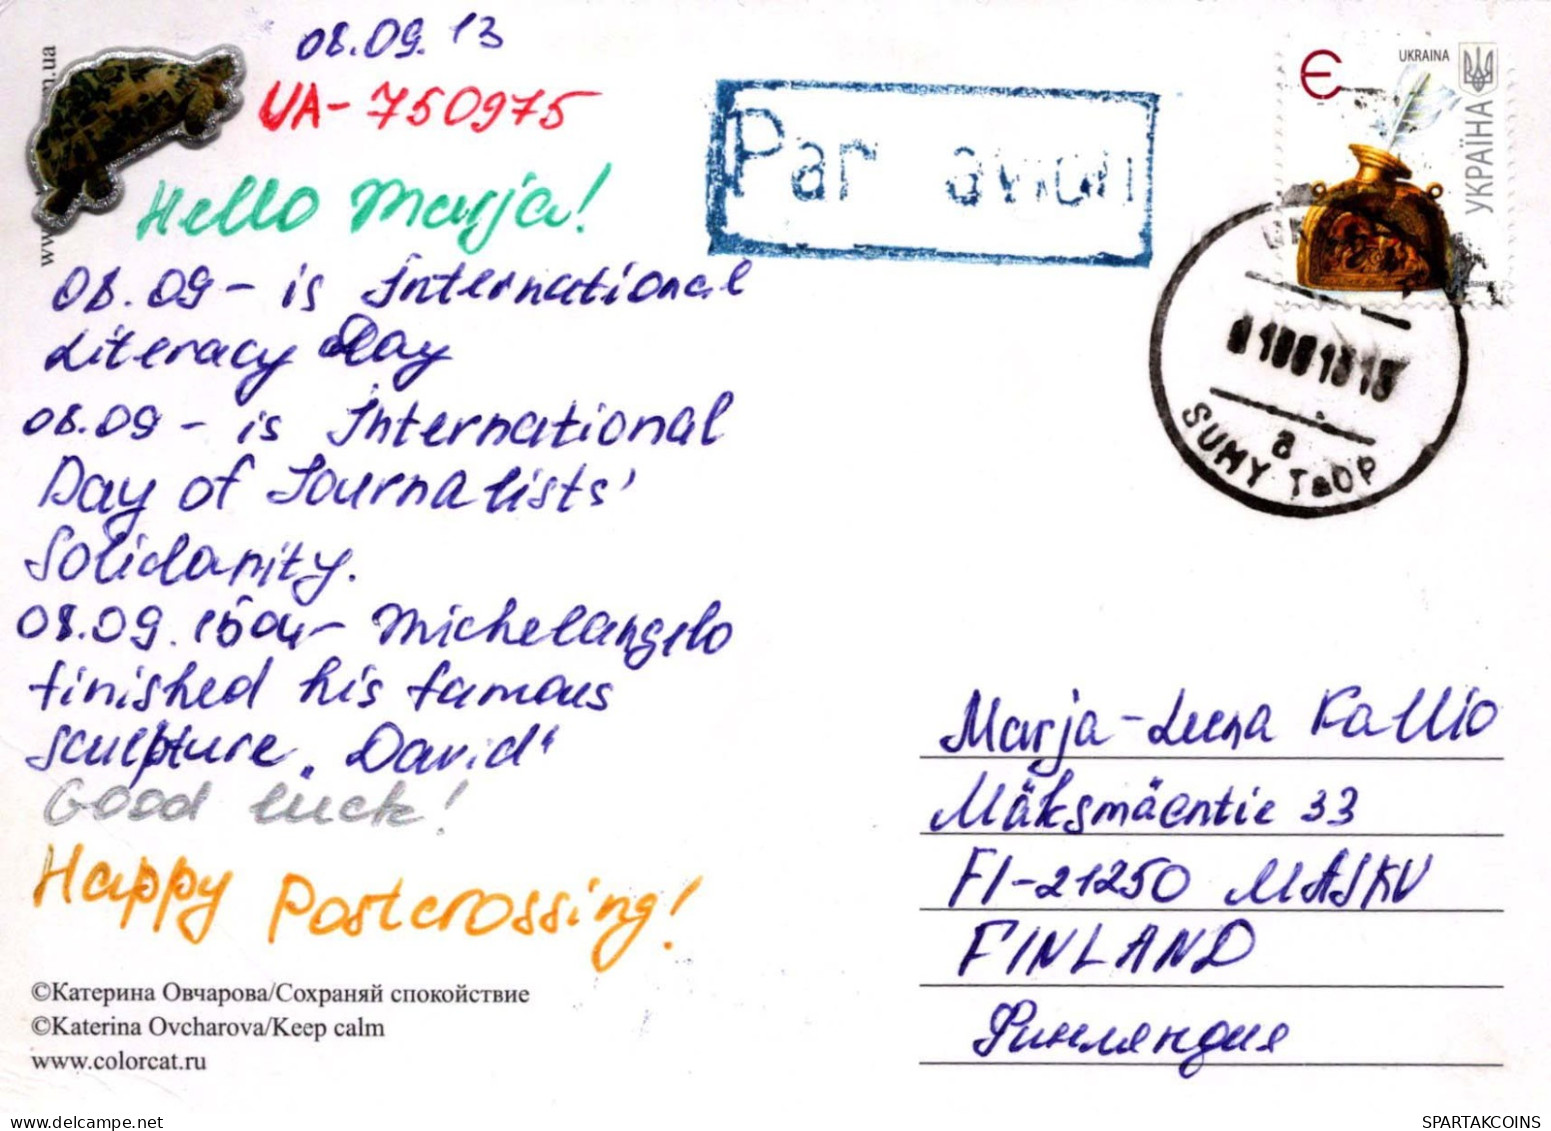 08.09.13
UA-750975
Hello Marja!
08.09 - is International
Literacy Day
08.09 - is International
Day of Journalists'
Solidarity.
08.09.1504 - Michelangelo
finished his famous
sculpture „David"
Good luck!
Happy Postcrossing!
©Катерина Овчарова/Сохраняй спокойствие
©Katerina Ovcharova/Keep calm
www.colorcat.ru
Par avion
Є
UKRAINA
УКРАЇНА
SUMY
a
Marja-Leena Kallio
Mäksmäentie 33
FI-21250 MASKU
FINLAND
Финляндия
SPARTAKCOINS